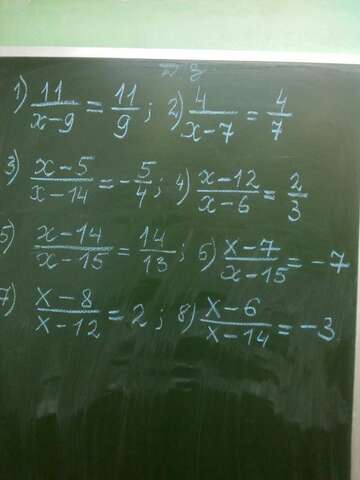 Д.З.
1) 11/(x-9) = 11/9; 2) 4/(x-7) = 4/7
3) (x-5)/(x-14) = -5/4; 4) (x-12)/(x-6) = 2/3
5) (x-14)/(x-15) = 14/13; 6) (x-7)/(x-15) = -7
7) (x-8)/(x-12) = 2; 8) (x-6)/(x-14) = -3